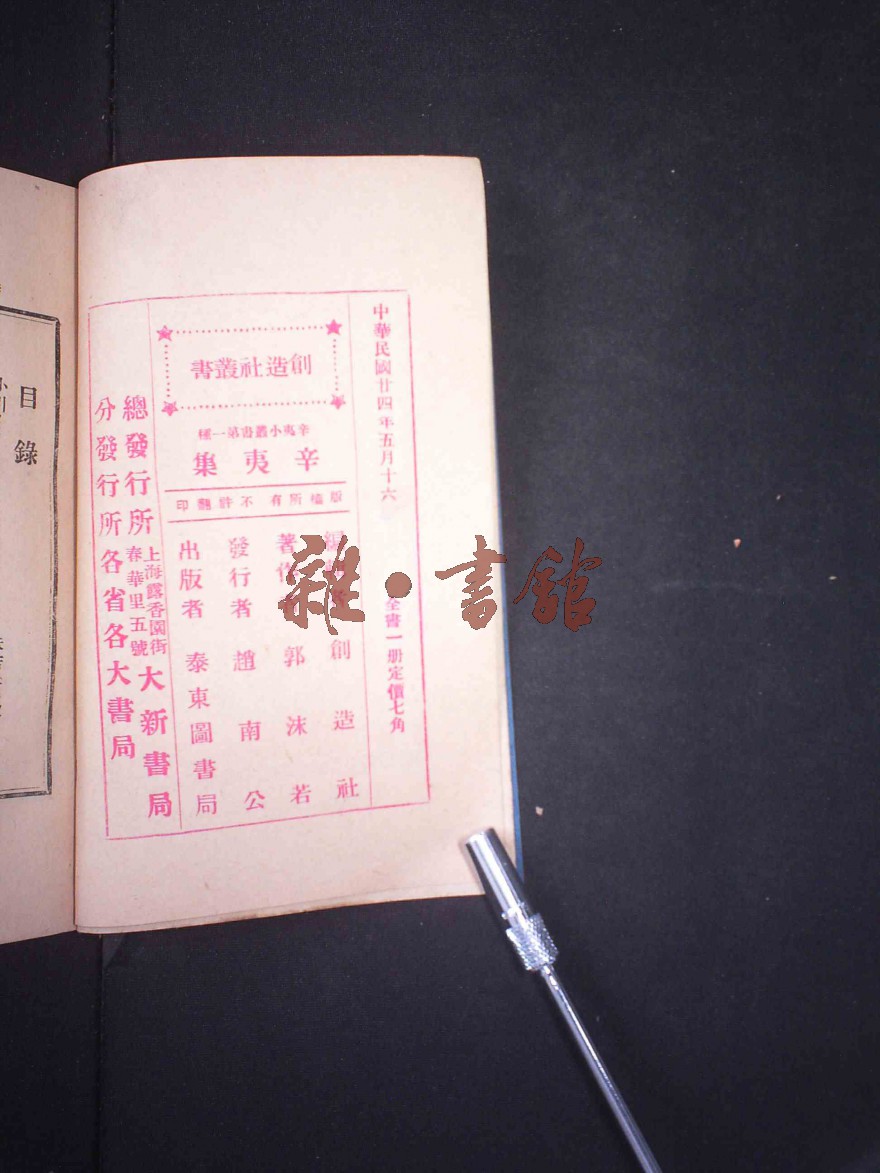 中華民國廿四年五月十六
全書一册定價七角
創造社叢書
辛夷小叢書第一種
辛夷集
版權所有 不許翻印
創造社
著作者 郭沫若
發行者 趙南公
出版者 泰東圖書局
總發行所 上海露香園街春華里五號 大新書局
分發行所各省各大書局
目錄
雜•書館